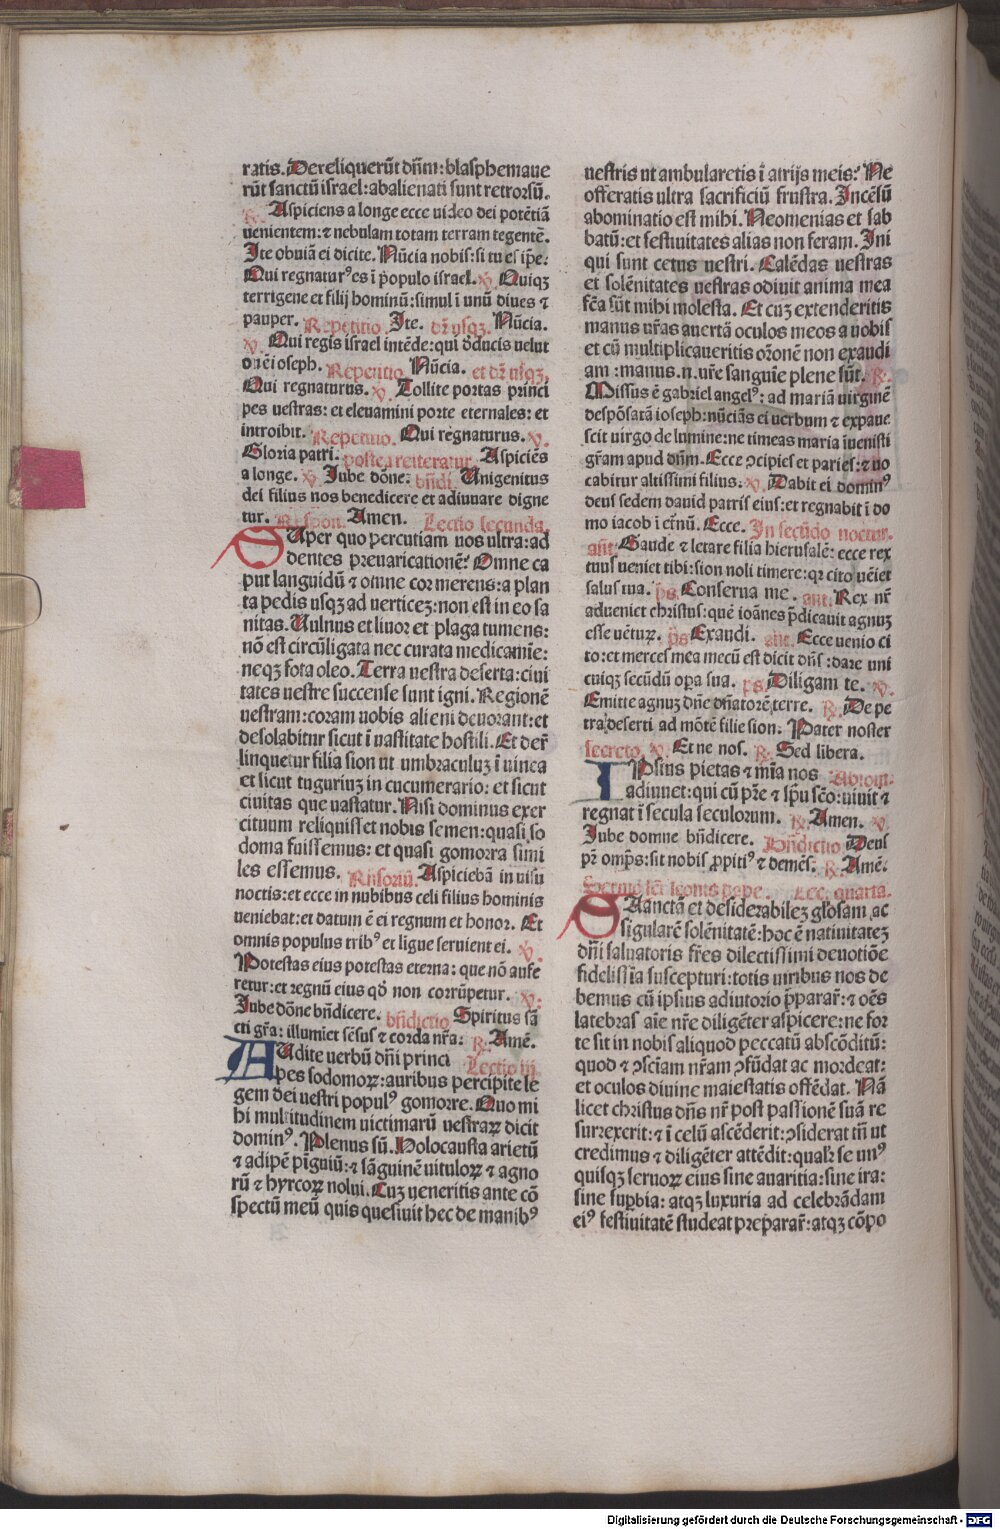 ratis. Dereliquerūt dn̄m: blasphemaue
rūt sanctū israel: abalienati sunt retrorsū.
℟. Aspiciens a longe ecce uideo dei potētiā
uenientem: ⁊ nebulam totam terram tegentē.
Ite obuiā ei dicite. Nūcia nobis: si tu es ip̄e:
Qui regnaturꝰ es ī populo israel. ℣. Quiqꝫ
terrigene et filij hominū: simul ī unū diues ⁊
pauper. Repetitio Ite. dr̄ usqꝫ. Nūcia.
℣. Qui regis israel intēde: qui deducis uelut
ouē ioseph. Repetitio Nūcia. et dr̄ usqꝫ.
Qui regnaturus. ℣. Tollite portas princi
pes uestras: et eleuamini porte eternales: et
introibit. Repetitio. Qui regnaturus. ℣.
Gloria patri. postea reiteratur Aspiciēs
a longe. ℣. Jube dōne: bn̄di. Unigenitus
dei filius nos benedicere et adiuuare digne
tur. Respon. Amen. Lectio secunda.
SUper quo percutiam uos ultra: ad
dentes preuaricationē? Omne ca
put languidū ⁊ omne cor merens: a plan
ta pedis usqꝫ ad uerticeꝫ: non est in eo sa
nitas. Uulnus et liuor et plaga tumens:
nō est circūligata nec curata medicamīe:
neqꝫ fota oleo. Terra uestra deserta: ciui
tates uestre succense sunt igni. Regionē
uestram: coram uobis alieni deuorant: et
desolabitur sicut ī uastitate hostili. Et der̄
linquetur filia sion ut umbraculuꝫ ī uinea
et sicut tuguriuꝫ in cucumerario: et sicut
ciuitas que uastatur. Nisi dominus exer
cituum reliquisset nobis semen: quasi so
doma fuissemus: et quasi gomorra simi
les essemus. Rn̄soriū. Aspiciebā in uisu
noctis: et ecce in nubibus celi filius hominis
ueniebat: et datum ē ei regnum et honor. Et
omnis populus tribꝰ et ligue seruient ei. ℣.
Potestas eius potestas eterna: que nō aufe
retur: et regnū eius qđ non corrūpetur. ℣.
Jube dōne bn̄dicere. bn̄dictio Spiritus sā
cti gr̄a: illumiet sēsus ⁊ corda nr̄a: ℟. Amē.
AUdite uerbū dn̄i princi Lectio iij.
pes sodomoꝝ: auribus percipite le
gem dei uestri populꝰ gomorre. Quo mi
hi multitudinem uictimarū uestraꝝ dicit
dominꝰ. Plenus sū. Holocausta arietū
⁊ adipē pīguiū: ⁊ sāguinē uituloꝝ ⁊ agno
rū ⁊ hyrcoꝝ nolui. Cuꝫ ueneritis ante cō
spectū meū quis quesiuit hec de manibꝰ
uestris ut ambularetis ī atrijs meis? Ne
offeratis ultra sacrificiū frustra. Incēsū
abominatio est mihi. Neomenias et sab
batū: et festiuitates alias non feram. Ini
qui sunt cetus uestri. Calēdas uestras
et solēnitates uestras odiuit anima mea
fc̄a sūt mihi molesta. Et cuꝫ extenderitis
manus ur̄as auertā oculos meos a uobis
et cū multiplicaueritis or̄onē non exaudi
am: manus .n. ur̄e sanguīe plene sūt. ℟.
Missus ē gabriel angelꝰ: ad mariā uirginē
despōsatā ioseph: nūciās ei uerbum ⁊ expaue
scit uirgo de lumine: ne timeas maria īuenisti
gr̄am apud dn̄m. Ecce ꝯcipies et paries: ⁊ uo
cabitur altissimi filius. ℣. Dabit ei dominꝰ
deus sedem dauid patris eius: et regnabit ī do
mo iacob ī et̄nū. Ecce. In secūdo noctur.
an̄t. Gaude ⁊ letare filia hierusalē: ecce rex
tuus ueniet tibi: sion noli timere: qꝛ cito uēiet
salus tua. ps. Conserua me. ant. Rex nr̄
adueniet christus: quē ioānes p̄dicauit agnuꝫ
esse uētuꝝ. ps Exaudi. an̄t. Ecce uenio ci
to: et merces mea mecū est dicit dn̄s: dare uni
cuiqꝫ secūdū opa sua. ps. Diligam te. ℣.
Emitte agnuꝫ dn̄e dn̄atorē terre. ℟. De pe
tra deserti ad mōtē filie sion: Pater noster
secreto. ℣. Et ne nos. ℟. Sed libera.
IPsius pietas ⁊ mīa nos Absolu-
adiuuet: qui cū pr̄e ⁊ sp̄u sc̄o: uiuit ⁊
regnat ī secula seculorum. ℟. Amen. ℣.
Jube domne bn̄dicere. Bn̄dictio Deus
pr̄ omp̄s: sit nobis ꝓpitiꝰ ⁊ clemēs. ℟. Amē.
Sermo sc̄i leonis pape. Lec. quarta.
SAnctā et desiderabileꝫ gl̄osam ac
sigularē solēnitatē: hoc ē natiuitateꝫ
dn̄i saluatoris fr̄es dilectissimi deuotiōe
fidelissīa suscepturi: totis uiribus nos de
bemus cū ipsius adiutorio p̄parar̄: ⁊ oēs
latebras aīe nr̄e diligēter aspicere: ne for
te sit in nobis aliquod peccatū abscōditū:
quod ⁊ ꝯsciam nr̄am ꝯfūdat ac mordeat:
et oculos diuine maiestatis offēdat. Nā
licet christus dn̄s nr̄ post passionē suā re
surrexerit: ⁊ ī celū ascēderit: ꝯsiderat tn̄ ut
credimus ⁊ diligēter attēdit: qualr̄ se unꝰ
quisqꝫ seruoꝝ eius sine auaritia: sine ira:
sine supbia: atqꝫ luxuria ad celebrādam
eiꝰ festiuitatē studeat preparar̄: atqꝫ cōpo
Digitalisierung gefördert durch die Deutsche Forschungsgemeinschaft - DFG